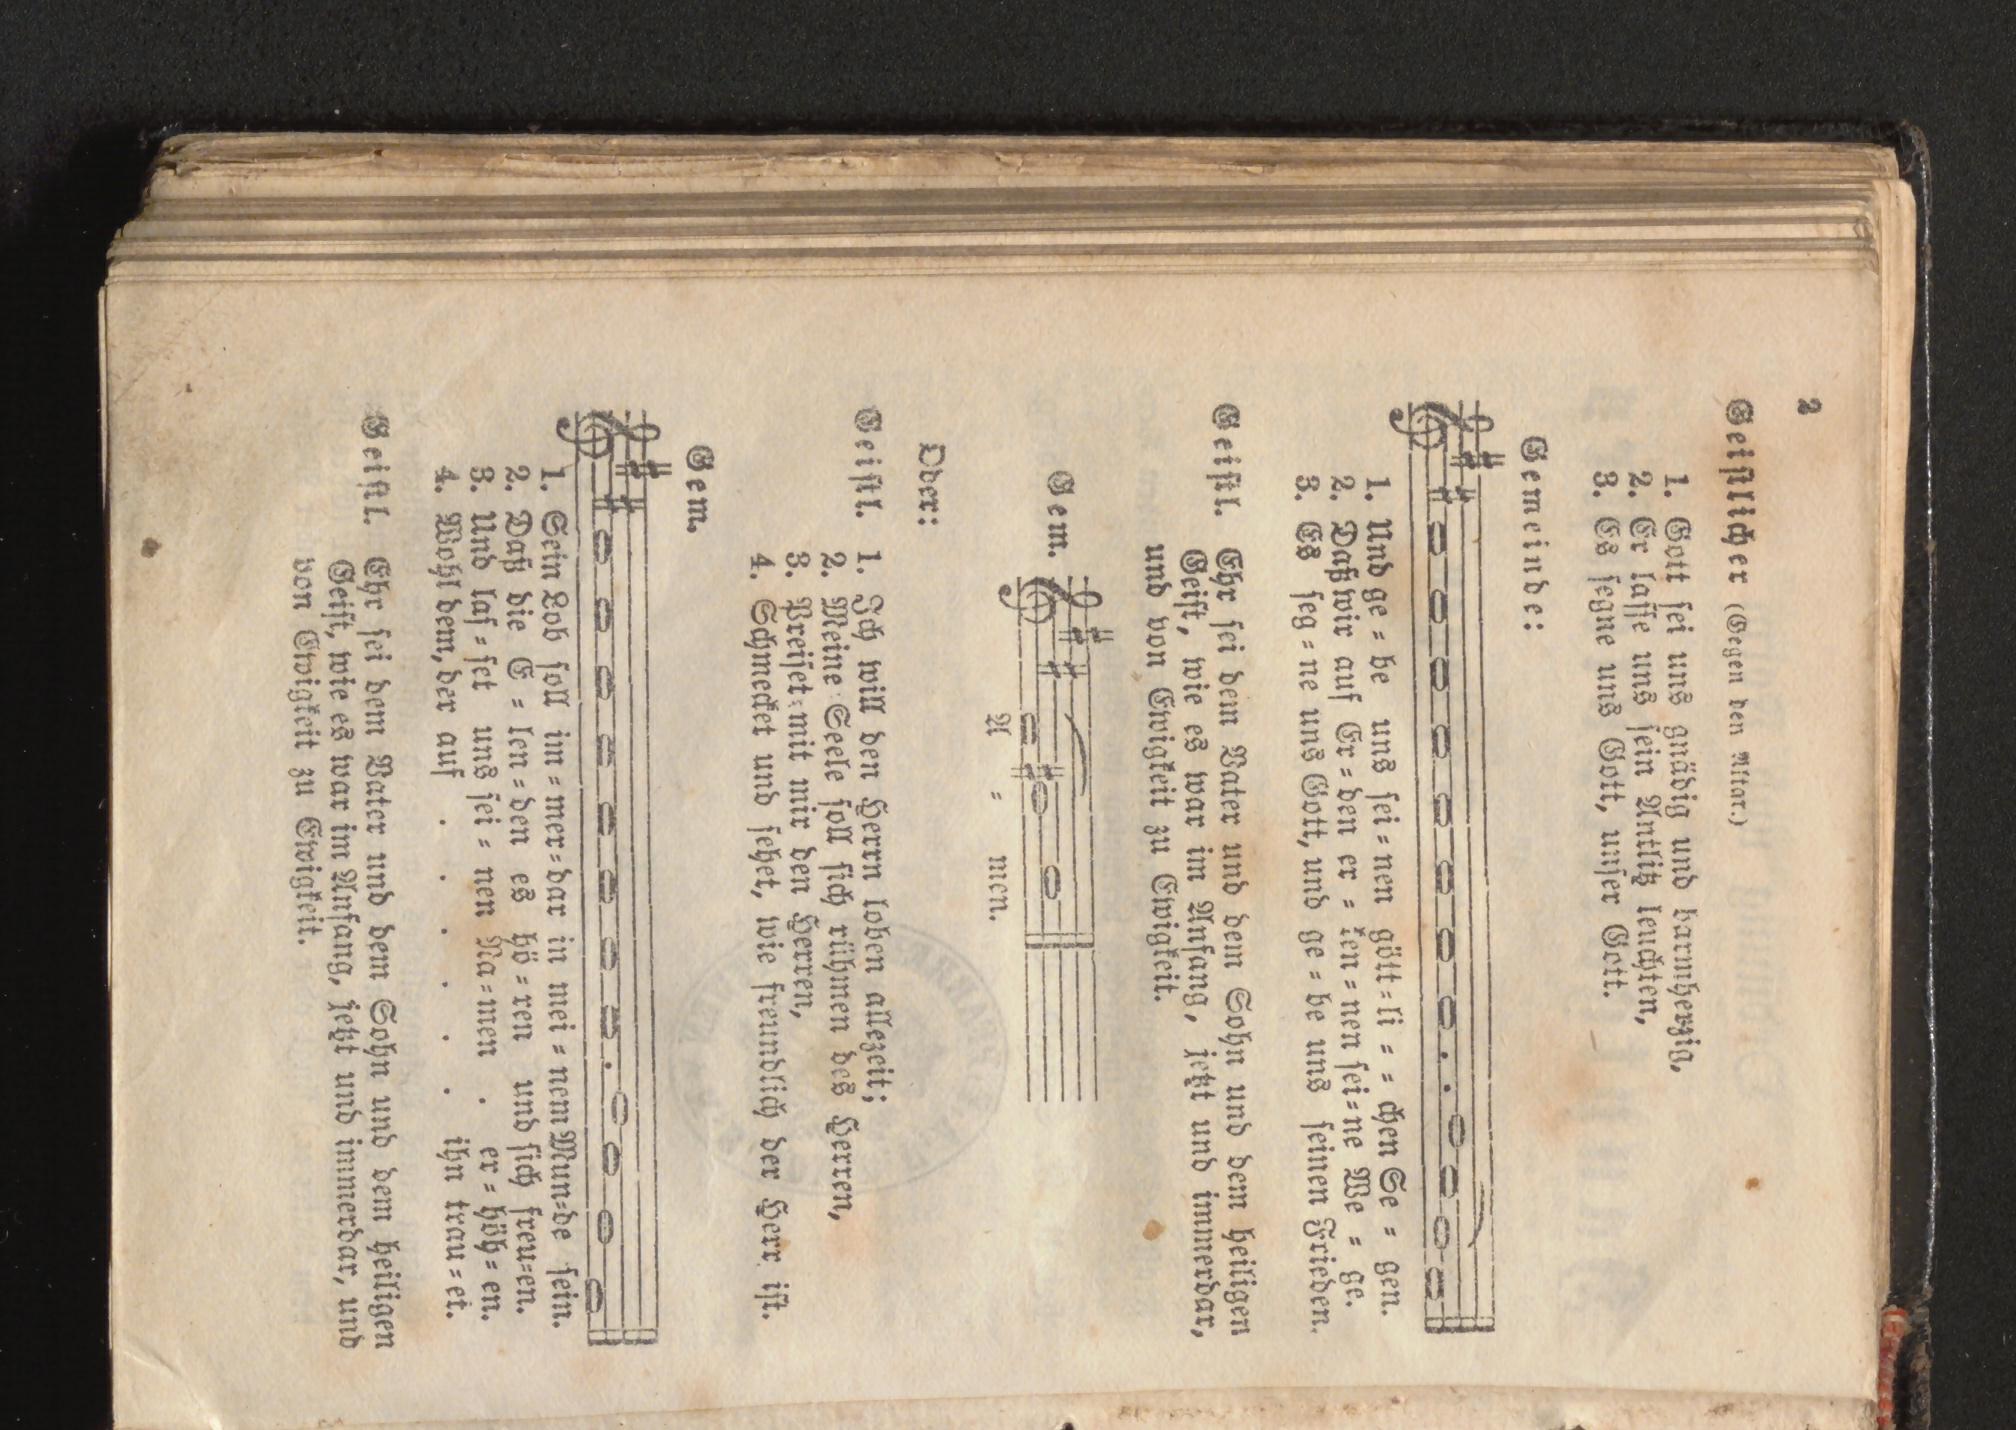 2
Geistlicher (Gegen den Altar.)
1. Gott sei uns gnädig und barmherzig,
2. Er lasse uns sein Antlitz leuchten,
3. Es segne uns Gott, unser Gott.
Gemeinde:
1. Und ge = be uns sei = nen gött = li = = chen Se = gen.
2. Daß wir auf Er = den er = ken = nen sei = ne We = ge.
3. Es seg = ne uns Gott, und ge = be uns seinen Frieden.
Geistl. Ehr sei dem Vater und dem Sohn und dem heiligen
Geist, wie es war im Anfang, jetzt und immerdar,
und von Ewigkeit zu Ewigkeit.
Gem.
A = men.
Oder:
Geistl. 1. Ich will den Herrn loben allezeit;
2. Meine Seele soll sich rühmen des Herren,
3. Preiset mit mir den Herren,
4. Schmecket und sehet, wie freundlich der Herr ist.
Gem.
1. Sein Lob soll im = mer = dar in mei = nem Mun = de sein.
2. Daß die E = len = den es hö = ren und sich freu = en.
3. Und las = set uns sei = nen Na = men . er = höh = en.
4. Wohl dem, der auf . . . . . . ihn trau = et.
Geistl. Ehr sei dem Vater und dem Sohn und dem heiligen
Geist, wie es war im Anfang, jetzt und immerdar, und
von Ewigkeit zu Ewigkeit.